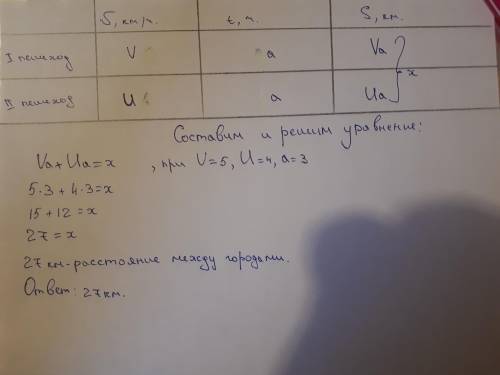 S, км/ч. t, ч. S, км.
I пешеход V a Va
x
II пешеход U a Ua
Составим и решим уравнение:
Va+Ua=x , при V=5, U=4, a=3
5·3+4·3=x
15+12=x
27=x
27 км-расстояние между городами.
Ответ: 27км.